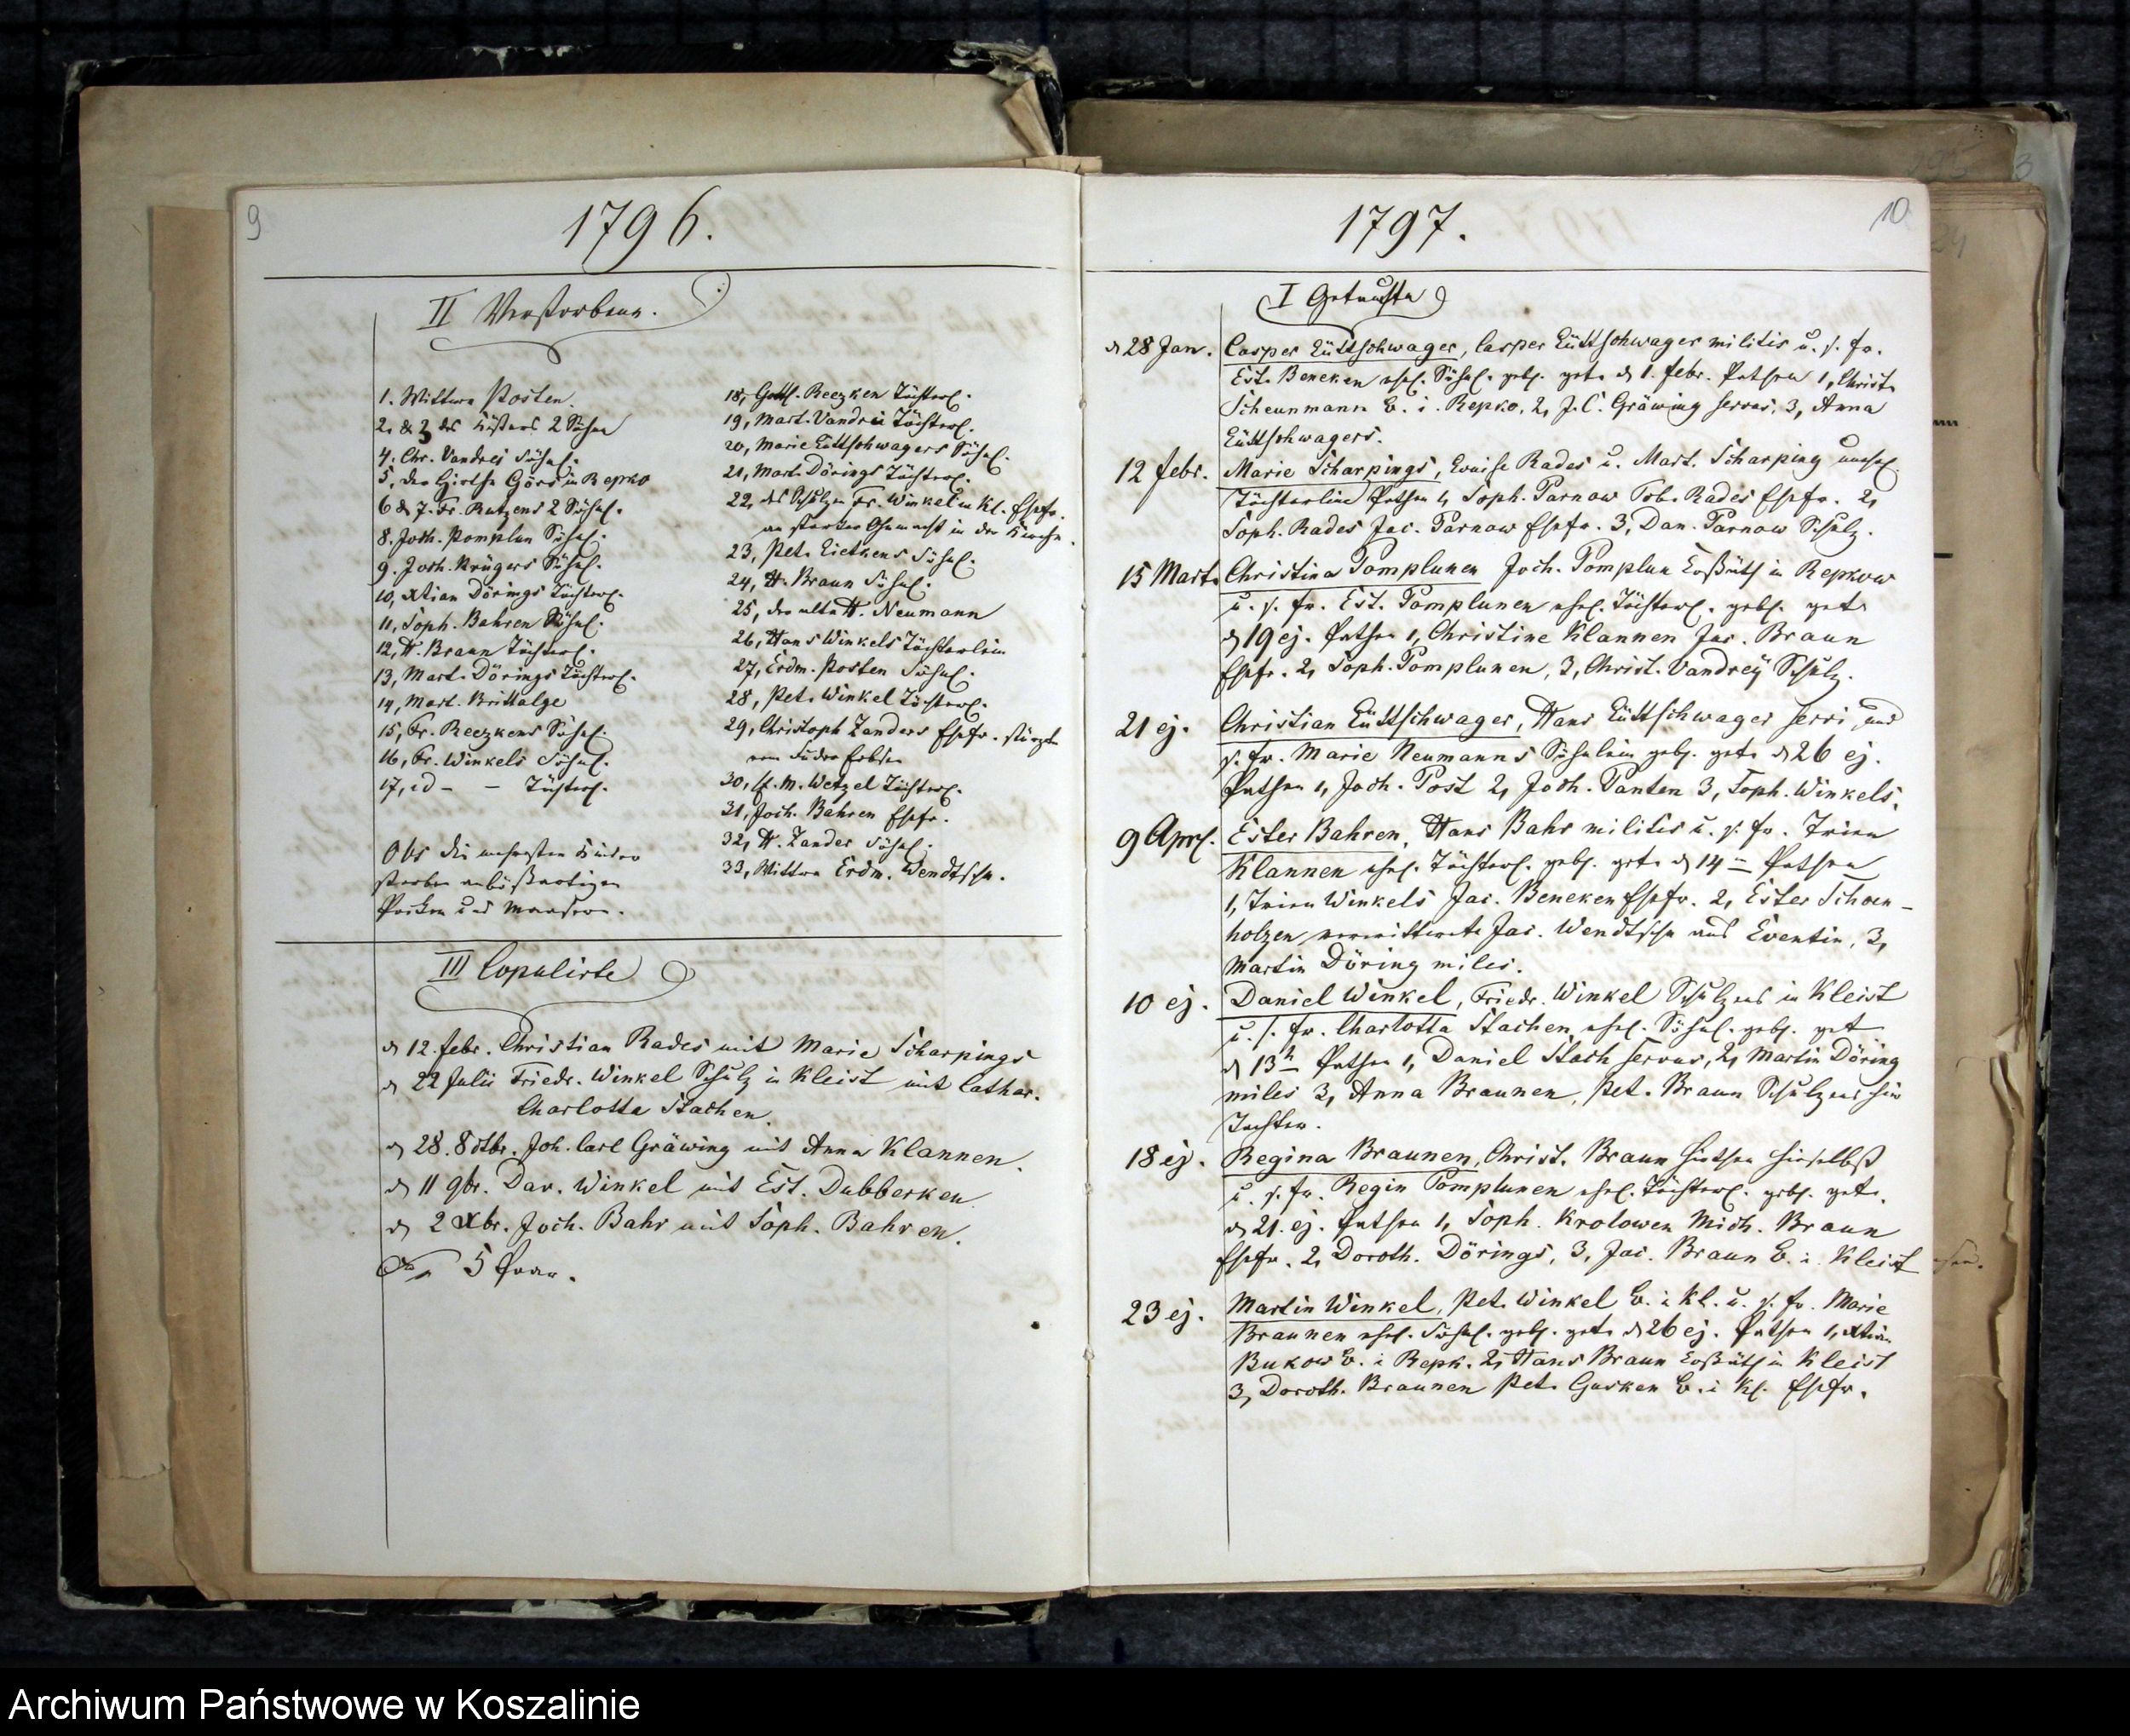 9
1796.
II Verstorbene.
1. Wittwe Posten.
2. & 3 des Küsters 2 Söhne
4. Chr. Vandrei Söhnl.
5, der Hirthe Görs in Repko
6 & 7. Fr. Rutzens 2 Söhnl.
8. Joch. Pomplun Söhnl.
9. Joch. Krügers Söhnl.
10, Xtian Dörings Töchterl.
11, Soph. Bahren Söhnl.
12, H. Braun Töchterl.
13, Mart. Dörings Töchterl.
14, Mart. Brittalge
15, Fr. Reezkens Söhnl.
16, Fr. Winkels Söhnl.
17, id - - Töchterl.
Obs die mehresten Kinder
starben an bößartigen
Pocken und Masern.
18, Gottf. Reezken Töchterl.
19, Mart. Vandrei Töchterl.
20, Marie Lüttschwagers Söhnl.
21, Mart. Dörings Töchterl.
22, des Schulzen Fr. Winkel in Kl. Ehefr.
an starker Ohnmacht in der Kirche.
23, Pet. Lietkens Söhnl.
24, H. Braun Söhnl.
25, der alte H. Neumann
26, Hans Winkels Töchterlein
27, Erdm. Posten Söhnl.
28, Pet. Winkel Töchterl.
29, Christoph Zanders Ehefr. stürzte
vom Fuder Erbsen
30, M. Wetzel Töchterl.
31, Joch. Bahren Ehefr.
32, H. Zander Söhnl.
33, Wittwe Erdm. Wendtsche.
III Copulirte
d 12. Febr. Christian Rades mit Marie Scharpings
d 22 Julii Friedr. Winkel Schulz in Kleist mit Cathar.
Charlotta Stachen.
d 28. 8ctbr. Joh. Carl Gräwing mit Anna Klannen.
d 11 9br. Dav. Winkel mit Est. Dubberken
d 2 Xbr. Joch. Bahr mit Soph. Bahren.
5 Paar.
10
1797.
I Getaufte
d 28 Jan. Casper Lüttschwager, Casper Lüttschwager militis u. s. Fr.
Est. Beneken ehel. Söhnl. gebr. get. d 1. Febr. Pathen 1, Christ.
Scheunmann B. i. Repko, 2, J. C. Gräwing servus, 3, Anna
Lüttschwagers.
12 Febr. Marie Scharpings, Louise Rades u. Mart. Scharping unehel.
Töchterlein Pathen 1, Soph. Parnow Tob. Rades Ehefr. 2,
Soph. Rades Jac. Parnow Ehefr. 3, Dan. Parnow Schulz.
15 Mart. Christina Pomplunen Joch. Pomplun Coßäth in Repkow
u. s. Fr. Est. Pomplunen ehel. Töchterl. gebr. get.
d 19 ej. Pathen 1, Christine Klannen Jac. Braun
Ehefr. 2, Soph. Pomplunen, 3, Christ. Vandrey Schulz.
21 ej. Christian Lüttschwager, Hans Lüttschwager servi und
s. Fr. Marie Neumanns Söhnlein gebr. get. d 26 ej.
Pathen 1, Joch. Post 2, Joch. Panten 3, Soph. Winkels.
9 Aprl. Ester Bahren, Hans Bahr militis u. s. Fr. Trien
Klannen ehel. Töchterl. gebr. get. d 14 Pathen
1, Trien Winkels Jac. Beneken Ehefr. 2, Ester Schoen-
holzen verwittwete Jac. Wendtsche aus Eventin, 3,
Martin Döring miles.
10 ej. Daniel Winkel, Friedr. Winkel Schulzens in Kleist
u. s. Fr. Charlotta Stachen ehel. Söhnl. gebr. get
d 13 Pathen 1, Daniel Stach servus, 2, Martin Döring
miles 3, Anna Braunen, Pet. Braun Schulzens hier
Tochter.
18 ej. Regina Braunen, Christ. Braun Hirthen hieselbst
u. s. Fr. Regin Pomplunen ehel. Töchterl. gebr. get.
d 21. ej. Pathen 1, Soph. Krolowen Mich. Braun
Ehefr. 2, Doroth. Dörings, 3, Jac. Braun B. i. Kleist
23 ej. Martin Winkel, Pet. Winkel B. i. Kl. u. s. Fr. Marie
Braunen ehel. Söhnl. gebr. get. d 26 ej. Pathen 1, Xtian
Bukow B. i Repk. 2, Hans Braun Coßäth in Kleist
3, Doroth. Braunen Pet. Gusken B. i Kl. Ehefr.
24
Archiwum Państwowe w Koszalinie